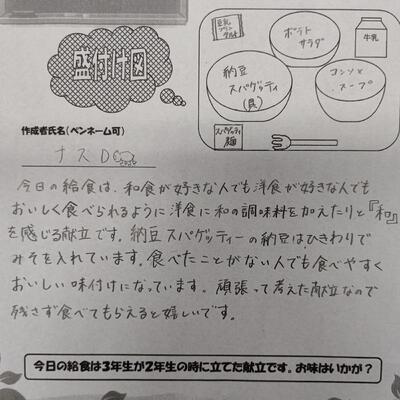 盛付け図
作成者氏名(ペンネーム可)
ナスD
豆乳
プリン
タルト
ポテト
サラダ
牛乳
納豆
スパゲッティ
(具)
コンソメ
スープ
スパゲッティ
麺
今日の給食は、和食が好きな人でも洋食が好きな人でも
おいしく食べられるように洋食に和の調味料を加えたりと『和』
を感じる献立です。納豆スパゲッティーの納豆はひきわりで
みそを入れています。食べたことがない人でも食べやすく
おいしい味付けになっています。頑張って考えた献立なので
残さず食べてもらえると嬉しいです。
今日の給食は3年生が2年生の時に立てた献立です。お味はいかが?